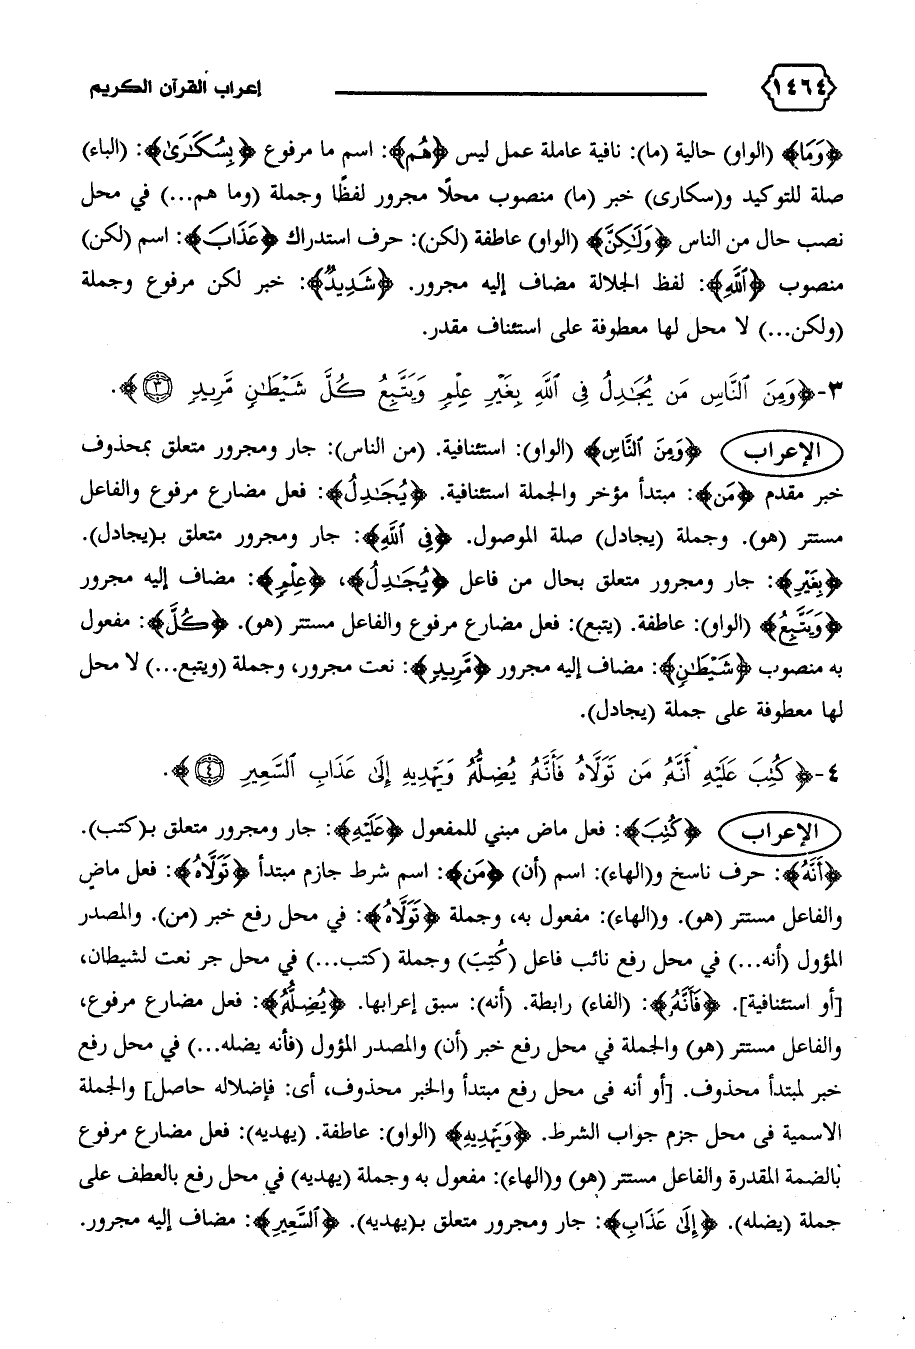 ١٤٦٤ إعراب القرآن الكريم
﴿وَمَا﴾ (الواو) حالية (ما): نافية عاملة عمل ليس ﴿هُم﴾: اسم ما مرفوع ﴿بِسُكَٰرَىٰ﴾: (الباء)
صلة للتوكيد و(سكارى) خبر (ما) منصوب محلًا مجرور لفظًا وجملة (وما هم...) في محل
نصب حال من الناس ﴿وَلَٰكِنَّ﴾ (الواو) عاطفة (لكن): حرف استدراك ﴿عَذَابَ﴾: اسم (لكن)
منصوب ﴿ٱللَّهِ﴾: لفظ الجلالة مضاف إليه مجرور. ﴿شَدِيدٌ﴾: خبر لكن مرفوع وجملة
(ولكن...) لا محل لها معطوفة على استئناف مقدر.
٣-﴿وَمِنَ ٱلنَّاسِ مَن يُجَٰدِلُ فِي ٱللَّهِ بِغَيْرِ عِلْمٍ وَيَتَّبِعُ كُلَّ شَيْطَٰنٍ مَّرِيدٍ ٣﴾.
الإعراب ﴿وَمِنَ ٱلنَّاسِ﴾ (الواو): استئنافية. (من الناس): جار ومجرور متعلق بمحذوف
خبر مقدم ﴿مَن﴾: مبتدأ مؤخر والجملة استئنافية. ﴿يُجَٰدِلُ﴾: فعل مضارع مرفوع والفاعل
مستتر (هو). وجملة (يجادل) صلة الموصول. ﴿فِي ٱللَّهِ﴾: جار ومجرور متعلق بـ(يجادل).
﴿بِغَيْرِ﴾: جار ومجرور متعلق بحال من فاعل ﴿يُجَٰدِلُ﴾، ﴿عِلْمٍ﴾: مضاف إليه مجرور
﴿وَيَتَّبِعُ﴾ (الواو): عاطفة. (يتبع): فعل مضارع مرفوع والفاعل مستتر (هو). ﴿كُلَّ﴾: مفعول
به منصوب ﴿شَيْطَٰنٍ﴾: مضاف إليه مجرور ﴿مَّرِيدٍ﴾: نعت مجرور، وجملة (ويتبع...) لا محل
لها معطوفة على جملة (يجادل).
٤-﴿كُتِبَ عَلَيْهِ أَنَّهُۥ مَن تَوَلَّاهُ فَأَنَّهُۥ يُضِلُّهُۥ وَيَهْدِيهِ إِلَىٰ عَذَابِ ٱلسَّعِيرِ ٤﴾.
الإعراب ﴿كُتِبَ﴾: فعل ماض مبني للمفعول ﴿عَلَيْهِ﴾: جار ومجرور متعلق بـ(كتب).
﴿أَنَّهُ﴾: حرف ناسخ و(الهاء): اسم (أن) ﴿مَن﴾: اسم شرط جازم مبتدأ ﴿تَوَلَّاهُ﴾: فعل ماضٍ
والفاعل مستتر (هو). و(الهاء): مفعول به، وجملة ﴿تَوَلَّاهُ﴾: في محل رفع خبر (من). والمصدر
المؤول (أنه...) في محل رفع نائب فاعل (كُتِبَ) وجملة (كتب...) في محل جر نعت لشيطان،
[أو استئنافية]. ﴿فَأَنَّهُ﴾: (الفاء) رابطة. (أنه): سبق إعرابها. ﴿يُضِلُّهُ﴾: فعل مضارع مرفوع،
والفاعل مستتر (هو) والجملة في محل رفع خبر (أن) والمصدر المؤول (فأنه يضله...) في محل رفع
خبر لمبتدأ محذوف. [أو أنه فى محل رفع مبتدأ والخبر محذوف، أى: فإضلاله حاصل] والجملة
الاسمية فى محل جزم جواب الشرط. ﴿وَيَهْدِيهِ﴾ (الواو): عاطفة. (يهديه): فعل مضارع مرفوع
بالضمة المقدرة والفاعل مستتر (هو) و(الهاء): مفعول به وجملة (يهديه) في محل رفع بالعطف على
جملة (يضله). ﴿إِلَىٰ عَذَابِ﴾: جار ومجرور متعلق بـ(يهديه). ﴿ٱلسَّعِيرِ﴾: مضاف إليه مجرور.